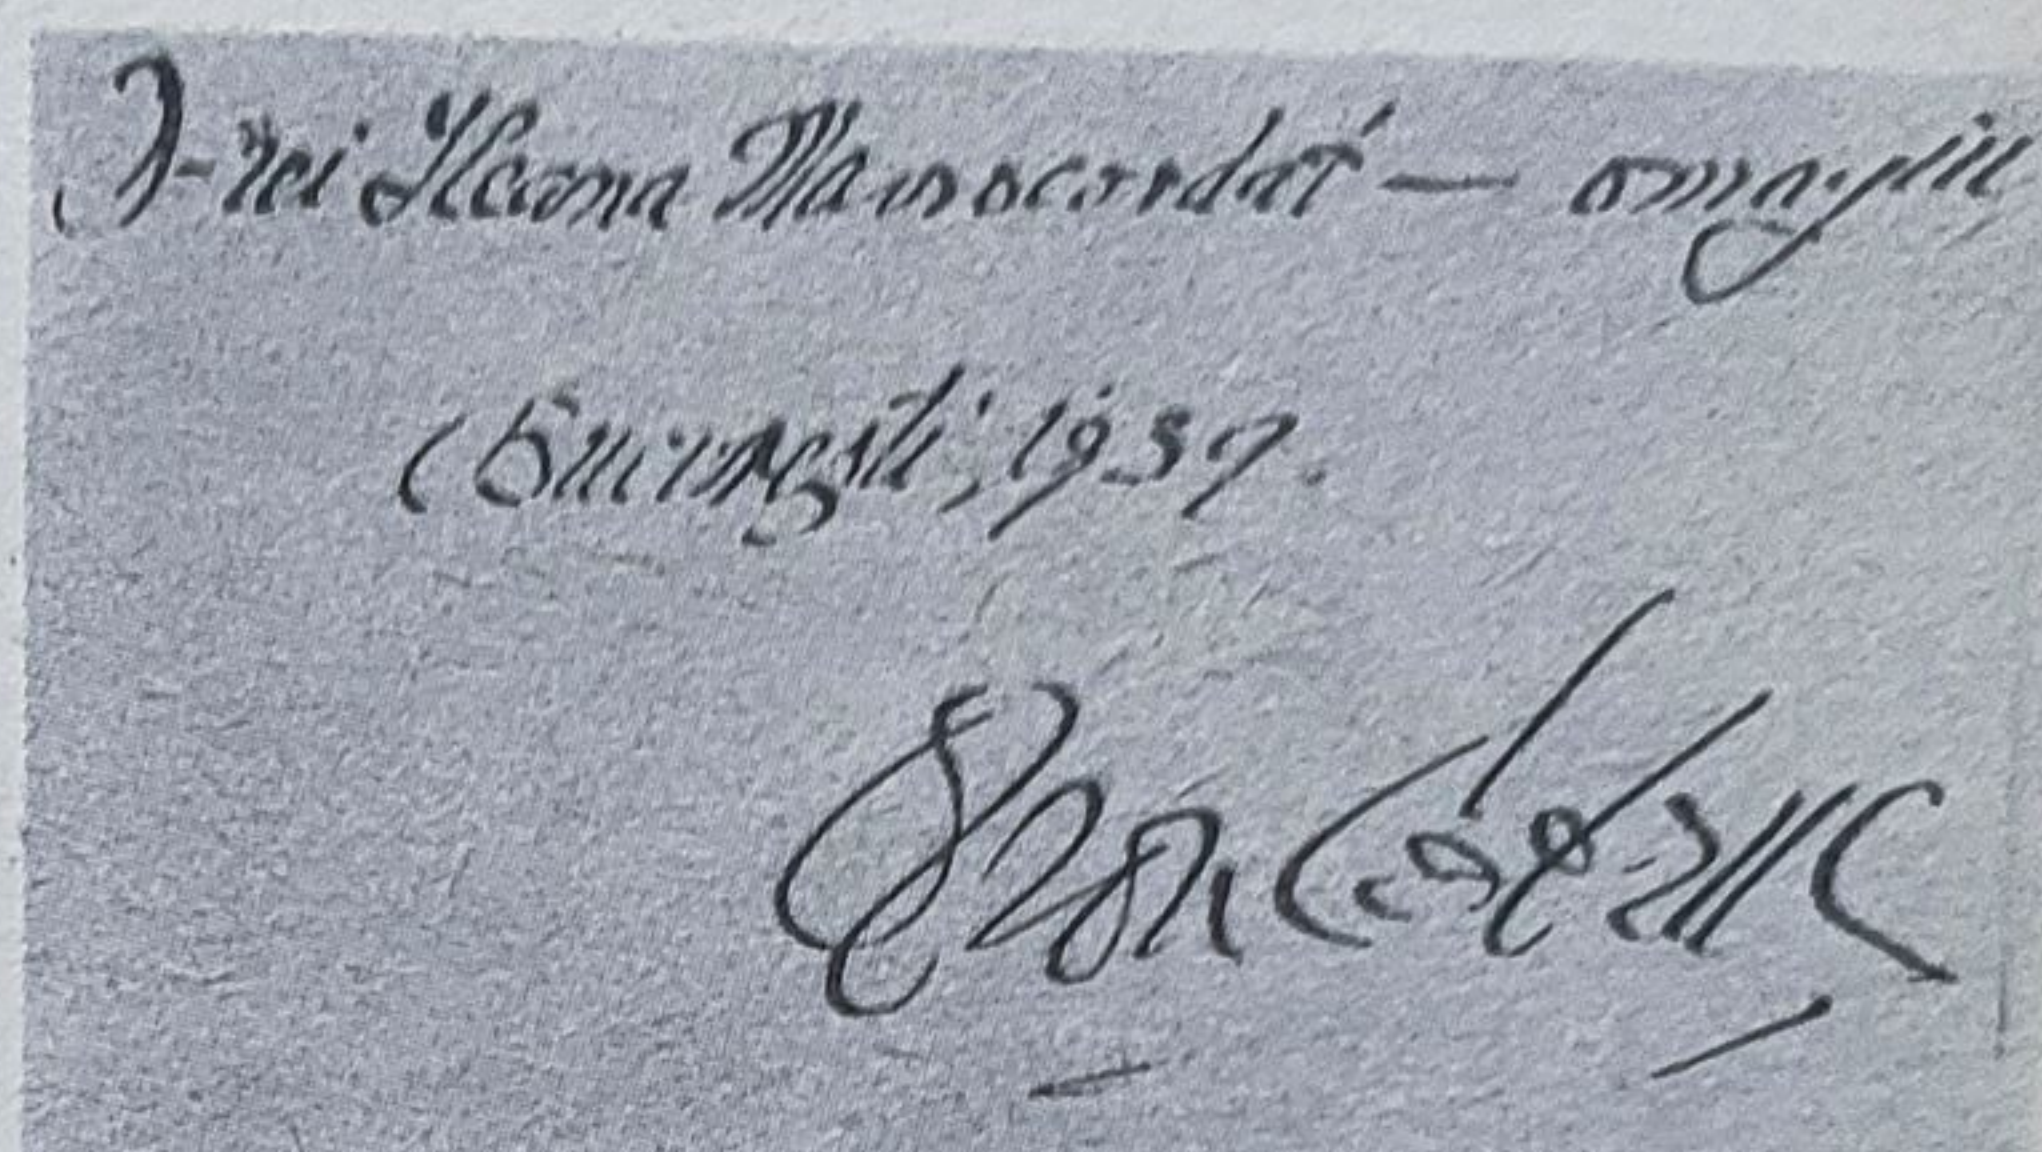 D-rei Ileana Mavrocordat — omagiu
București, 1937.